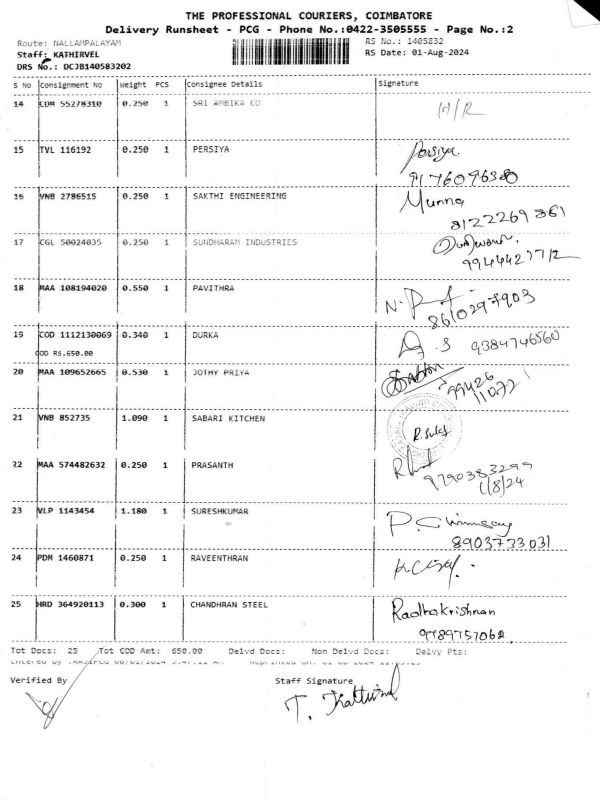 THE PROFESSIONAL COURIERS, COIMBATORE
Delivery Runsheet - PCG - Phone No.:0422-3505555 - Page No.:2
Route: NALLAMPALAYAM
RS No.: 1405832
Staff: KATHIRVEL
RS Date: 01-Aug-2024
DRS No.: DCJB140583202
S No Consignment No Weight PCS Consignee Details Signature
14 CDM 55278310 0.250 1 SRI AMBIKA CO
15 TVL 116192 0.250 1 PERSIYA Persiya
9176096380
16 VNB 2786515 0.250 1 SAKTHI ENGINEERING Munna
8122269861
17 CGL 50024035 0.250 1 SUNDHARAM INDUSTRIES
9944427712
18 MAA 108194020 0.550 1 PAVITHRA
8610297903
19 COD 1112130069 0.340 1 DURKA 9384746560
COD RS.650.00
20 MAA 109652665 0.530 1 JOTHY PRIYA 99426
11077
21 VNB 852735 1.090 1 SABARI KITCHEN
22 MAA 574482632 0.250 1 PRASANTH
9790383299
1/8/24
23 VLP 1143454 1.180 1 SURESHKUMAR
8903733031
24 PDM 1460871 0.250 1 RAVEENTHRAN
25 HRD 364920113 0.300 1 CHANDHRAN STEEL Radhakrishnan
9789757062
Tot Docs: 25 Tot COD Amt: 650.00 Delvd Docs: Non Delvd Docs: Delvy Pts:
Verified By Staff Signature